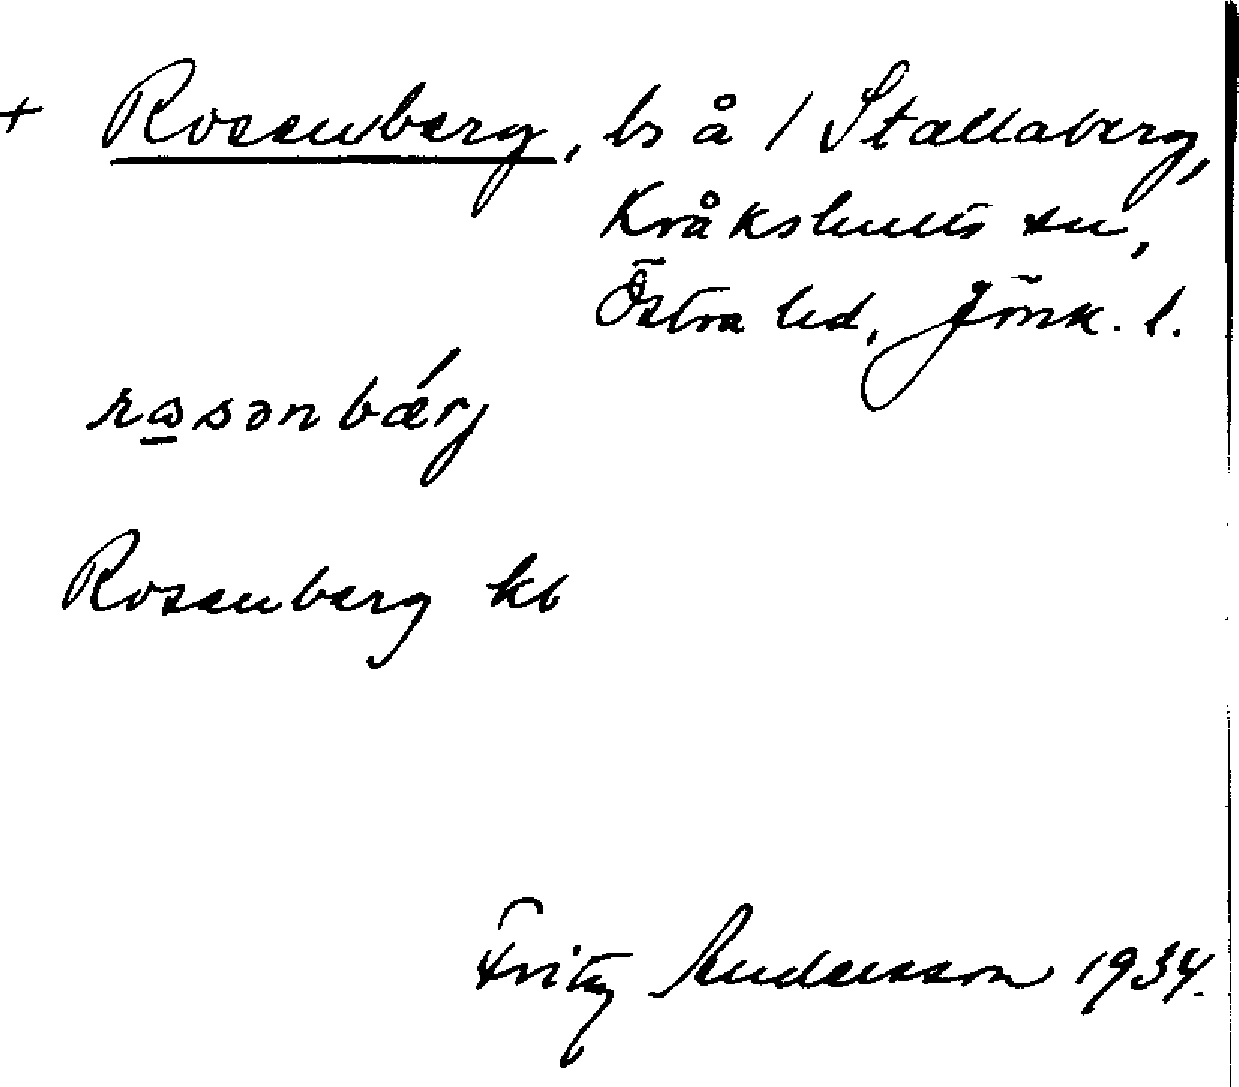 + Rosenberg, bs å 1 Stallaberg,
Kråkshults sn,
Östra hd, Jönk. l.
rɷsənbǽrj
Rosenberg kb
Fritz Andersson 1934.